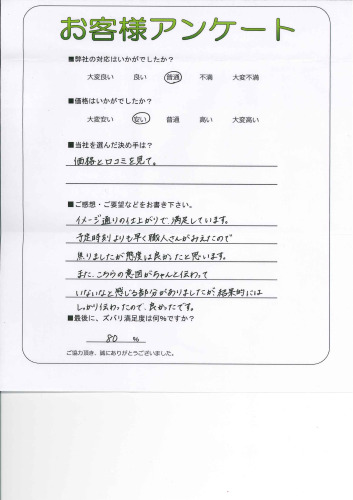 お客様アンケート
■弊社の対応はいかがでしたか?
大変良い 良い 普通 不満 大変不満
■価格はいかがでしたか?
大変安い 安い 普通 高い 大変高い
■当社を選んだ決め手は?
価格と口コミを見て。
■ご感想・ご要望などをお書き下さい。
イメージ通りの仕上がりで、満足しています。
予定時刻よりも早く職人さんがみえたので
焦りましたが態度は良かったと思います。
また、こちらの意図がちゃんと伝わって
いないなと感じる部分がありましたが、結果的には
しっかり伝わったので、良かったです。
■最後に、ズバリ満足度は何%ですか?
80 %
ご協力頂き、誠にありがとうございました。